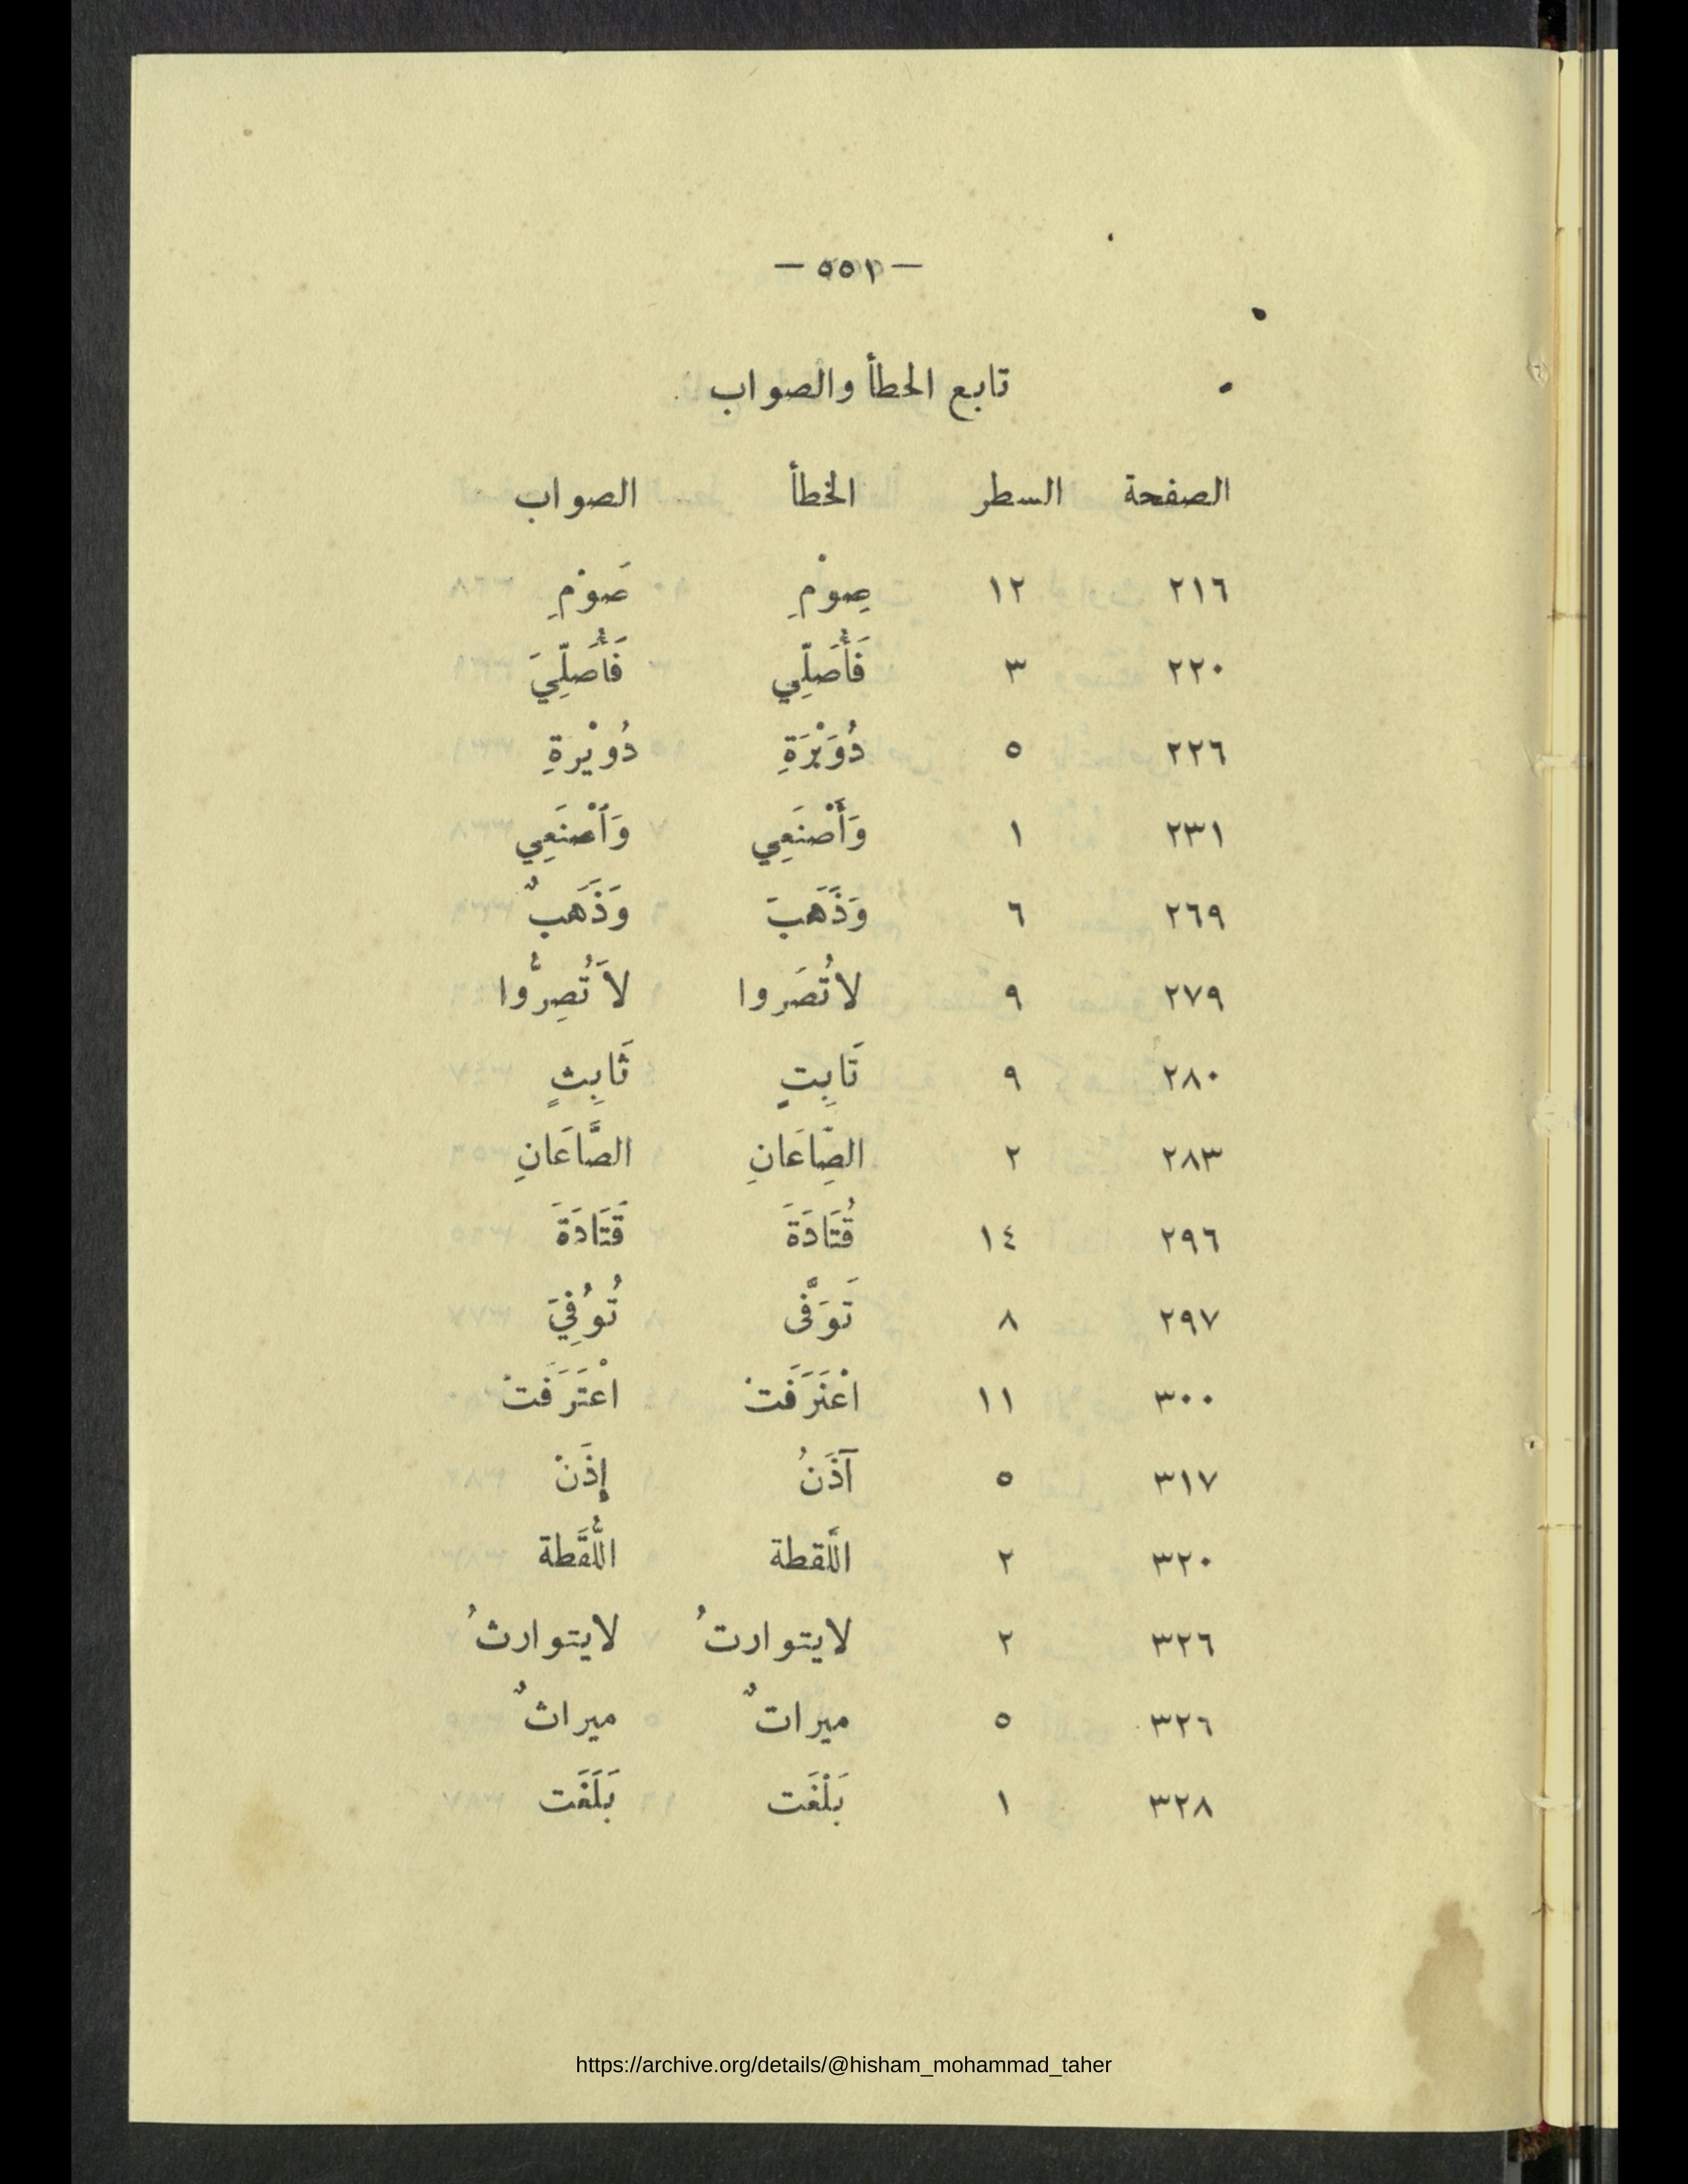 — ٥٥١ —
تابع الخطأ والصواب
الصفحة السطر الخطأ الصواب
٢١٦ ١٢ صِوْمِ صَوْمِ
٢٢٠ ٣ فَأُصَلِّي فَأُصَلِّيَ
٢٢٦ ٥ دُوَبْرَةِ دُويْرةِ
٢٣١ ١ وَأَصْنَعِي وَٱصْنَعِي
٢٦٩ ٦ وَذَهَبَ وَذَهَبٌ
٢٧٩ ٩ لاتُصَروا لاَتُصِرُّوا
٢٨٠ ٩ تَابِتٍ ثَابِثٍ
٢٨٣ ٢ الصِّاعَانِ الصَّاعَانِ
٢٩٦ ١٤ قُتَادَةَ قَتَادَةَ
٢٩٧ ٨ تَوَفَّى تُوُفِيَ
٣٠٠ ١١ اعْنَرَفَتْ اعْتَرَفَتْ
٣١٧ ٥ آذَنُ إِذَنْ
٣٢٠ ٢ اللَّقطة اللُّقَطة
٣٢٦ ٢ لايتوارتُ لايتوارثُ
٣٢٦ ٥ ميراتٌ ميراثٌ
٣٢٨ ١ بَلْغَت بَلَغَت
https://archive.org/details/@hisham_mohammad_taher